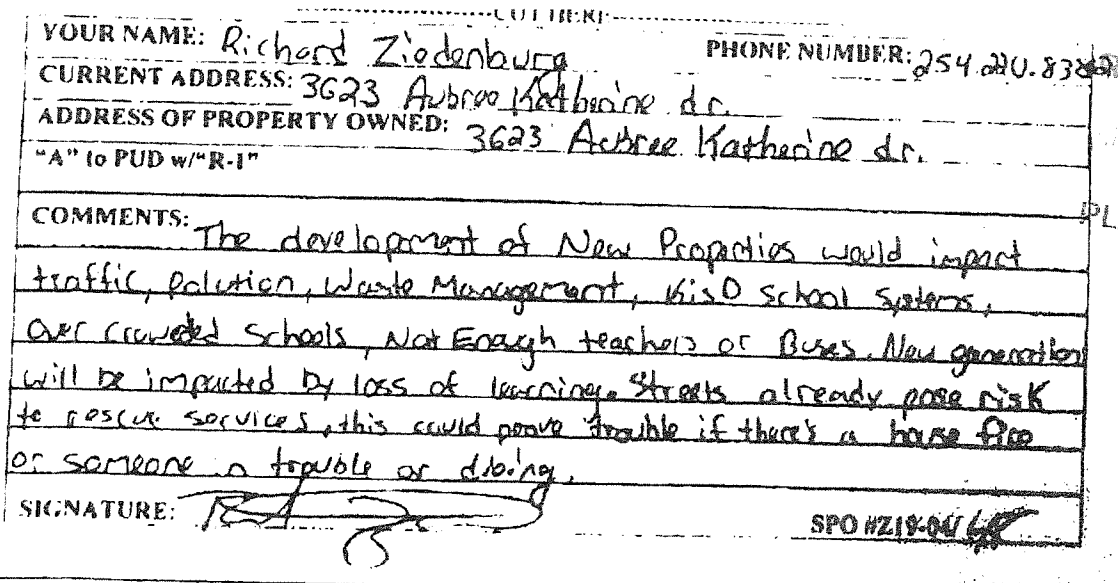 CUT HERE
YOUR NAME: Richard Ziedenburg PHONE NUMBER: 254.220.
CURRENT ADDRESS: 3623 Aubree Katherine dr.
ADDRESS OF PROPERTY OWNED: 3623 Acbree Katherine dr.
"A" to PUD w/"R-1"
PL
COMMENTS: The development of New Properties would impact
traffic, Polution, Waste Management, KisD School Systems,
over crowded Schools, Not Enough teachers or Buses. New generation
will be impacted by loss of learning. Streets already pose risk
to rescue services, this could proove trouble if there's a house fire
or someone in trouble or dieing.
SIGNATURE: SPO #Z18-04